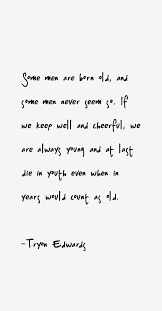 Some men are born old, and
some men never seem so. If
we keep well and cheerful, we
are always young and at last
die in youth even when in
years would count as old.
-Tryon Edwards